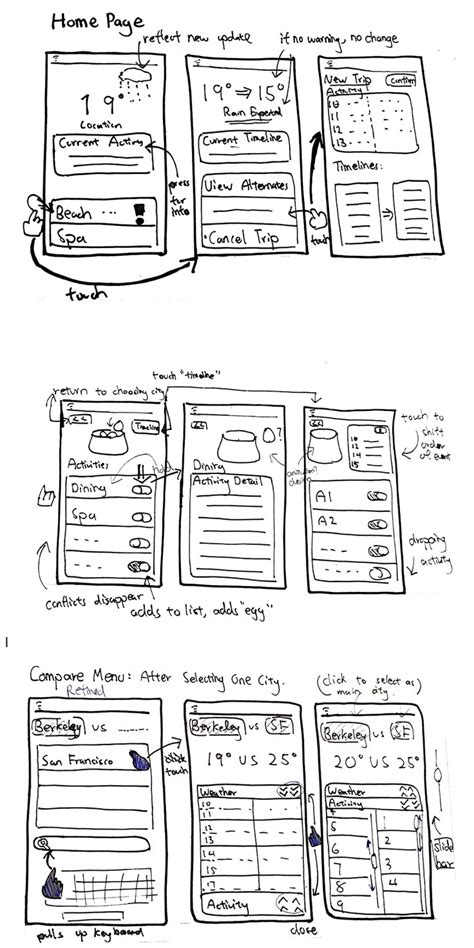 Home Page
reflect new update
if no warning, no change
19°
Location
Current Actives
press for info
Beach ... !
Spa
touch
19° ⇒ 15°
Rain Expected
Current Timeline
View Alternates
Cancel Trip
touch
New Trip
Confirm
Activity
10
11
12
13
Timelines:
touch "timeline"
return to choosing city
<<
Timeline
Activities
Dining
Spa
hold
conflicts disappear
adds to list, adds "egg"
<<
?
Dining
Activity Detail
<<
10
12
14
15
A1
A2
touch to shift order of event
dropping activity
Compare Menu: After Selecting One City.
Retined
Berkeley vs
San Francisco
click touch
pulls up keyboard
Berkeley vs SF
19° VS 25°
Weather
10
11
12
13
14
15
17
Activity
close
(click to select as main city.)
Berkeley vs SF
20° VS 25°
Weather
Activity
5
6
7
8
9
1
2
3
4
slide bar